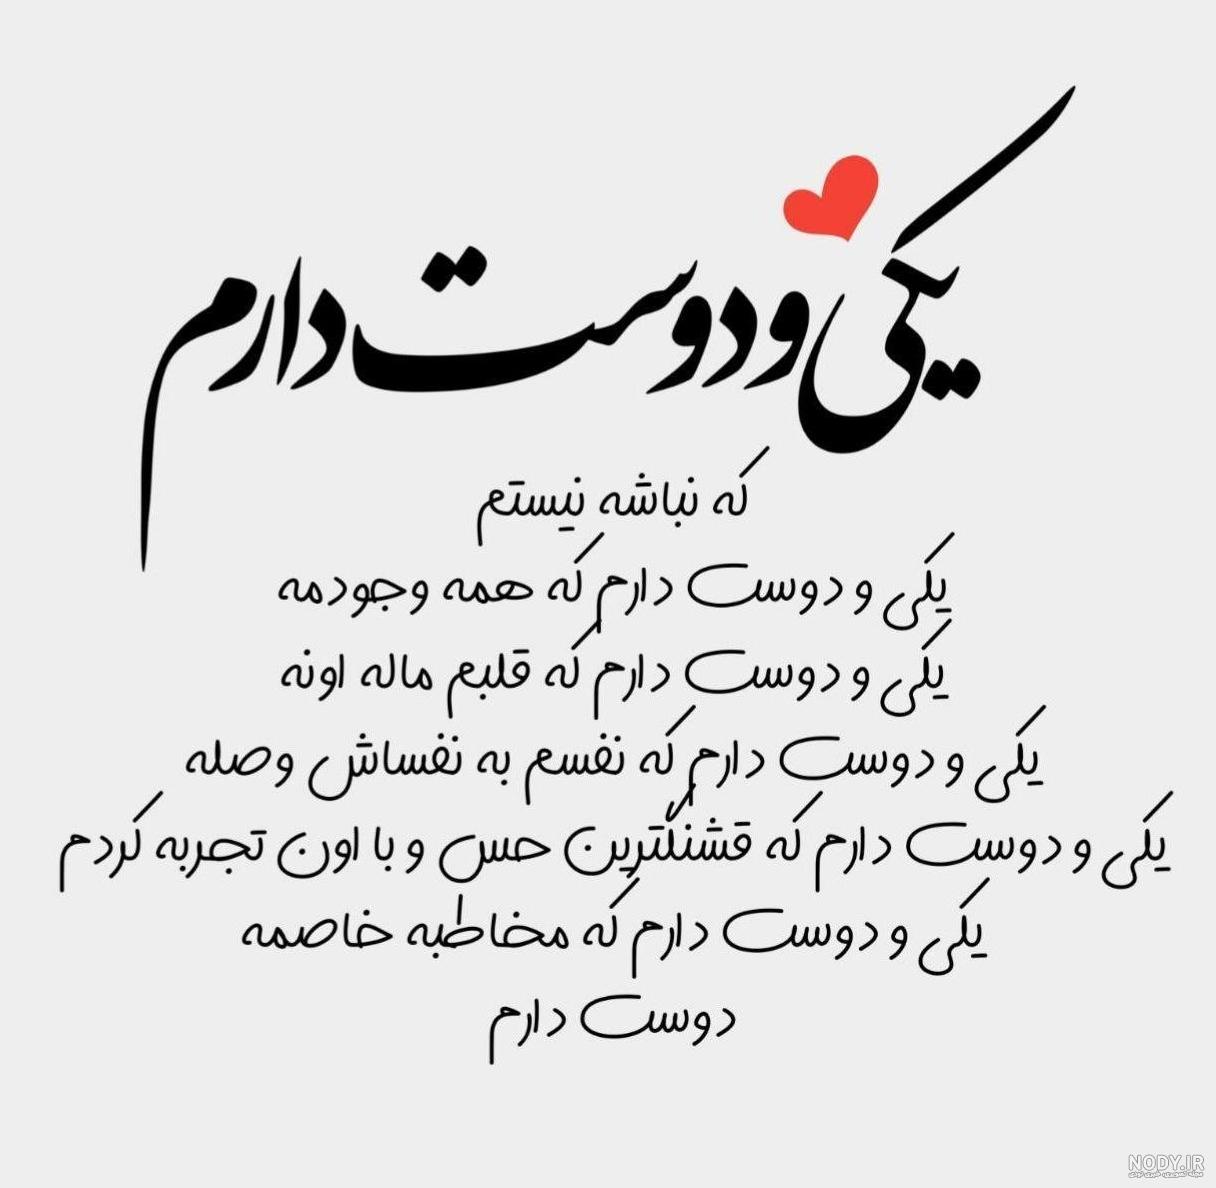 یکی و دوست دارم
که نباشه نیستم
یکی و دوست دارم که همه وجودمه
یکی و دوست دارم که قلبم ماله اونه
یکی و دوست دارم که نفسم به نفساش وصله
یکی و دوست دارم که قشنگترین حس و با اون تجربه کردم
یکی و دوست دارم که مخاطبه خاصمه
دوست دارم
NODY.IR